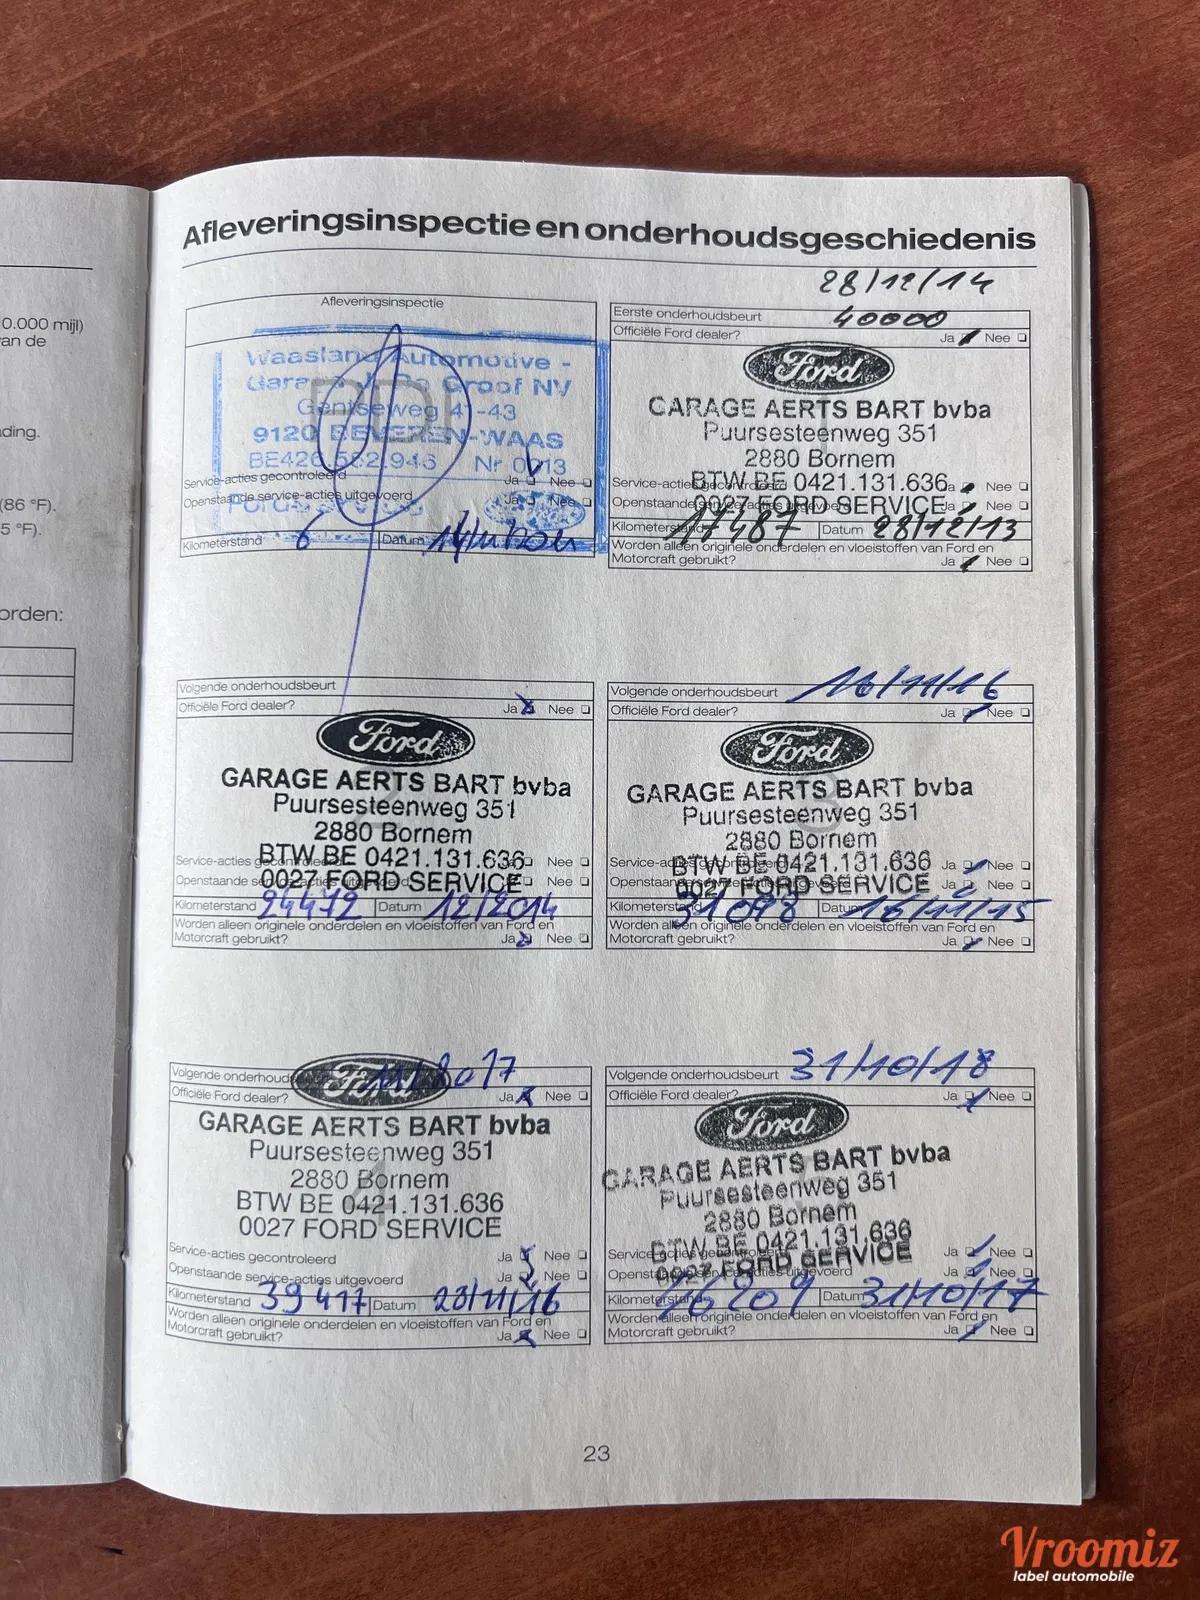 0.000 mijl)
an de
ding.
(86 °F).
5 °F).
orden:
Afleveringsinspectie en onderhoudsgeschiedenis
Afleveringsinspectie
Waasland Automotive -
Garage De Groof NV
Gentseweg 41-43
9120 BEVEREN-WAAS
Service-acties gecontroleerd Ja Nee
Openstaande service-acties uitgevoerd Ja Nee
Kilometerstand 6 Datum
28/12/14
Eerste onderhoudsbeurt 40000
Officiële Ford dealer? Ja Nee
Ford
GARAGE AERTS BART bvba
Puursesteenweg 351
2880 Bornem
BTW BE 0421.131.636
Service-acties gecontroleerd Ja Nee
0027 FORD SERVICE
Openstaande service-acties uitgevoerd Ja Nee
Kilometerstand 17487 Datum 28/12/13
Worden alleen originele onderdelen en vloeistoffen van Ford en
Motorcraft gebruikt? Ja Nee
Volgende onderhoudsbeurt
Officiële Ford dealer? Ja Nee
Ford
GARAGE AERTS BART bvba
Puursesteenweg 351
2880 Bornem
BTW BE 0421.131.636
Service-acties gecontroleerd Ja Nee
0027 FORD SERVICE
Openstaande service-acties uitgevoerd Ja Nee
Kilometerstand 24472 Datum 12/2014
Worden alleen originele onderdelen en vloeistoffen van Ford en
Motorcraft gebruikt? Ja Nee
Volgende onderhoudsbeurt 16/11/16
Officiële Ford dealer? Ja Nee
Ford
GARAGE AERTS BART bvba
Puursesteenweg 351
2880 Bornem
BTW BE 0421.131.636
Service-acties gecontroleerd Ja Nee
0027 FORD SERVICE
Openstaande service-acties uitgevoerd Ja Nee
Kilometerstand 31098 Datum 16/11/15
Worden alleen originele onderdelen en vloeistoffen van Ford en
Motorcraft gebruikt? Ja Nee
Volgende onderhoudsbeurt
Officiële Ford dealer? Ja Nee
Ford
GARAGE AERTS BART bvba
Puursesteenweg 351
2880 Bornem
BTW BE 0421.131.636
0027 FORD SERVICE
Service-acties gecontroleerd Ja Nee
Openstaande service-acties uitgevoerd Ja Nee
Kilometerstand 39417 Datum
Worden alleen originele onderdelen en vloeistoffen van Ford en
Motorcraft gebruikt? Ja Nee
Volgende onderhoudsbeurt 31/10/18
Officiële Ford dealer? Ja Nee
Ford
GARAGE AERTS BART bvba
Puursesteenweg 351
2880 Bornem
BTW BE 0421.131.636
Service-acties gecontroleerd Ja Nee
0027 FORD SERVICE
Openstaande service-acties uitgevoerd Ja Nee
Kilometerstand 46209 Datum 31/10/17
Worden alleen originele onderdelen en vloeistoffen van Ford en
Motorcraft gebruikt? Ja Nee
23
Vroomiz
label automobile